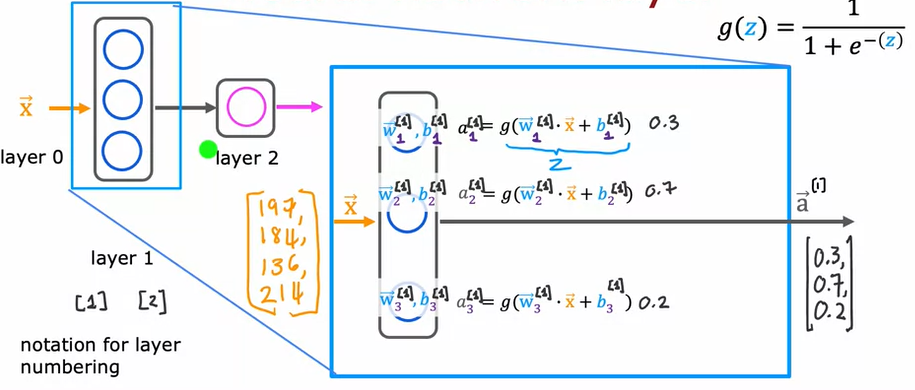 g(z) = 1 / (1 + e^-(z))
x⃗
layer 0
layer 2
layer 1
[1] [2]
notation for layer
numbering
[197,
184,
136,
214]
x⃗
w⃗₁^[1], b₁^[1] a₁^[1] = g(w⃗₁^[1] · x⃗ + b₁^[1]) 0.3
z
w⃗₂^[1], b₂^[1] a₂^[1] = g(w⃗₂^[1] · x⃗ + b₂^[1]) 0.7
w⃗₃^[1], b₃^[1] a₃^[1] = g(w⃗₃^[1] · x⃗ + b₃^[1]) 0.2
a⃗^[1]
[0.3,
0.7,
0.2]